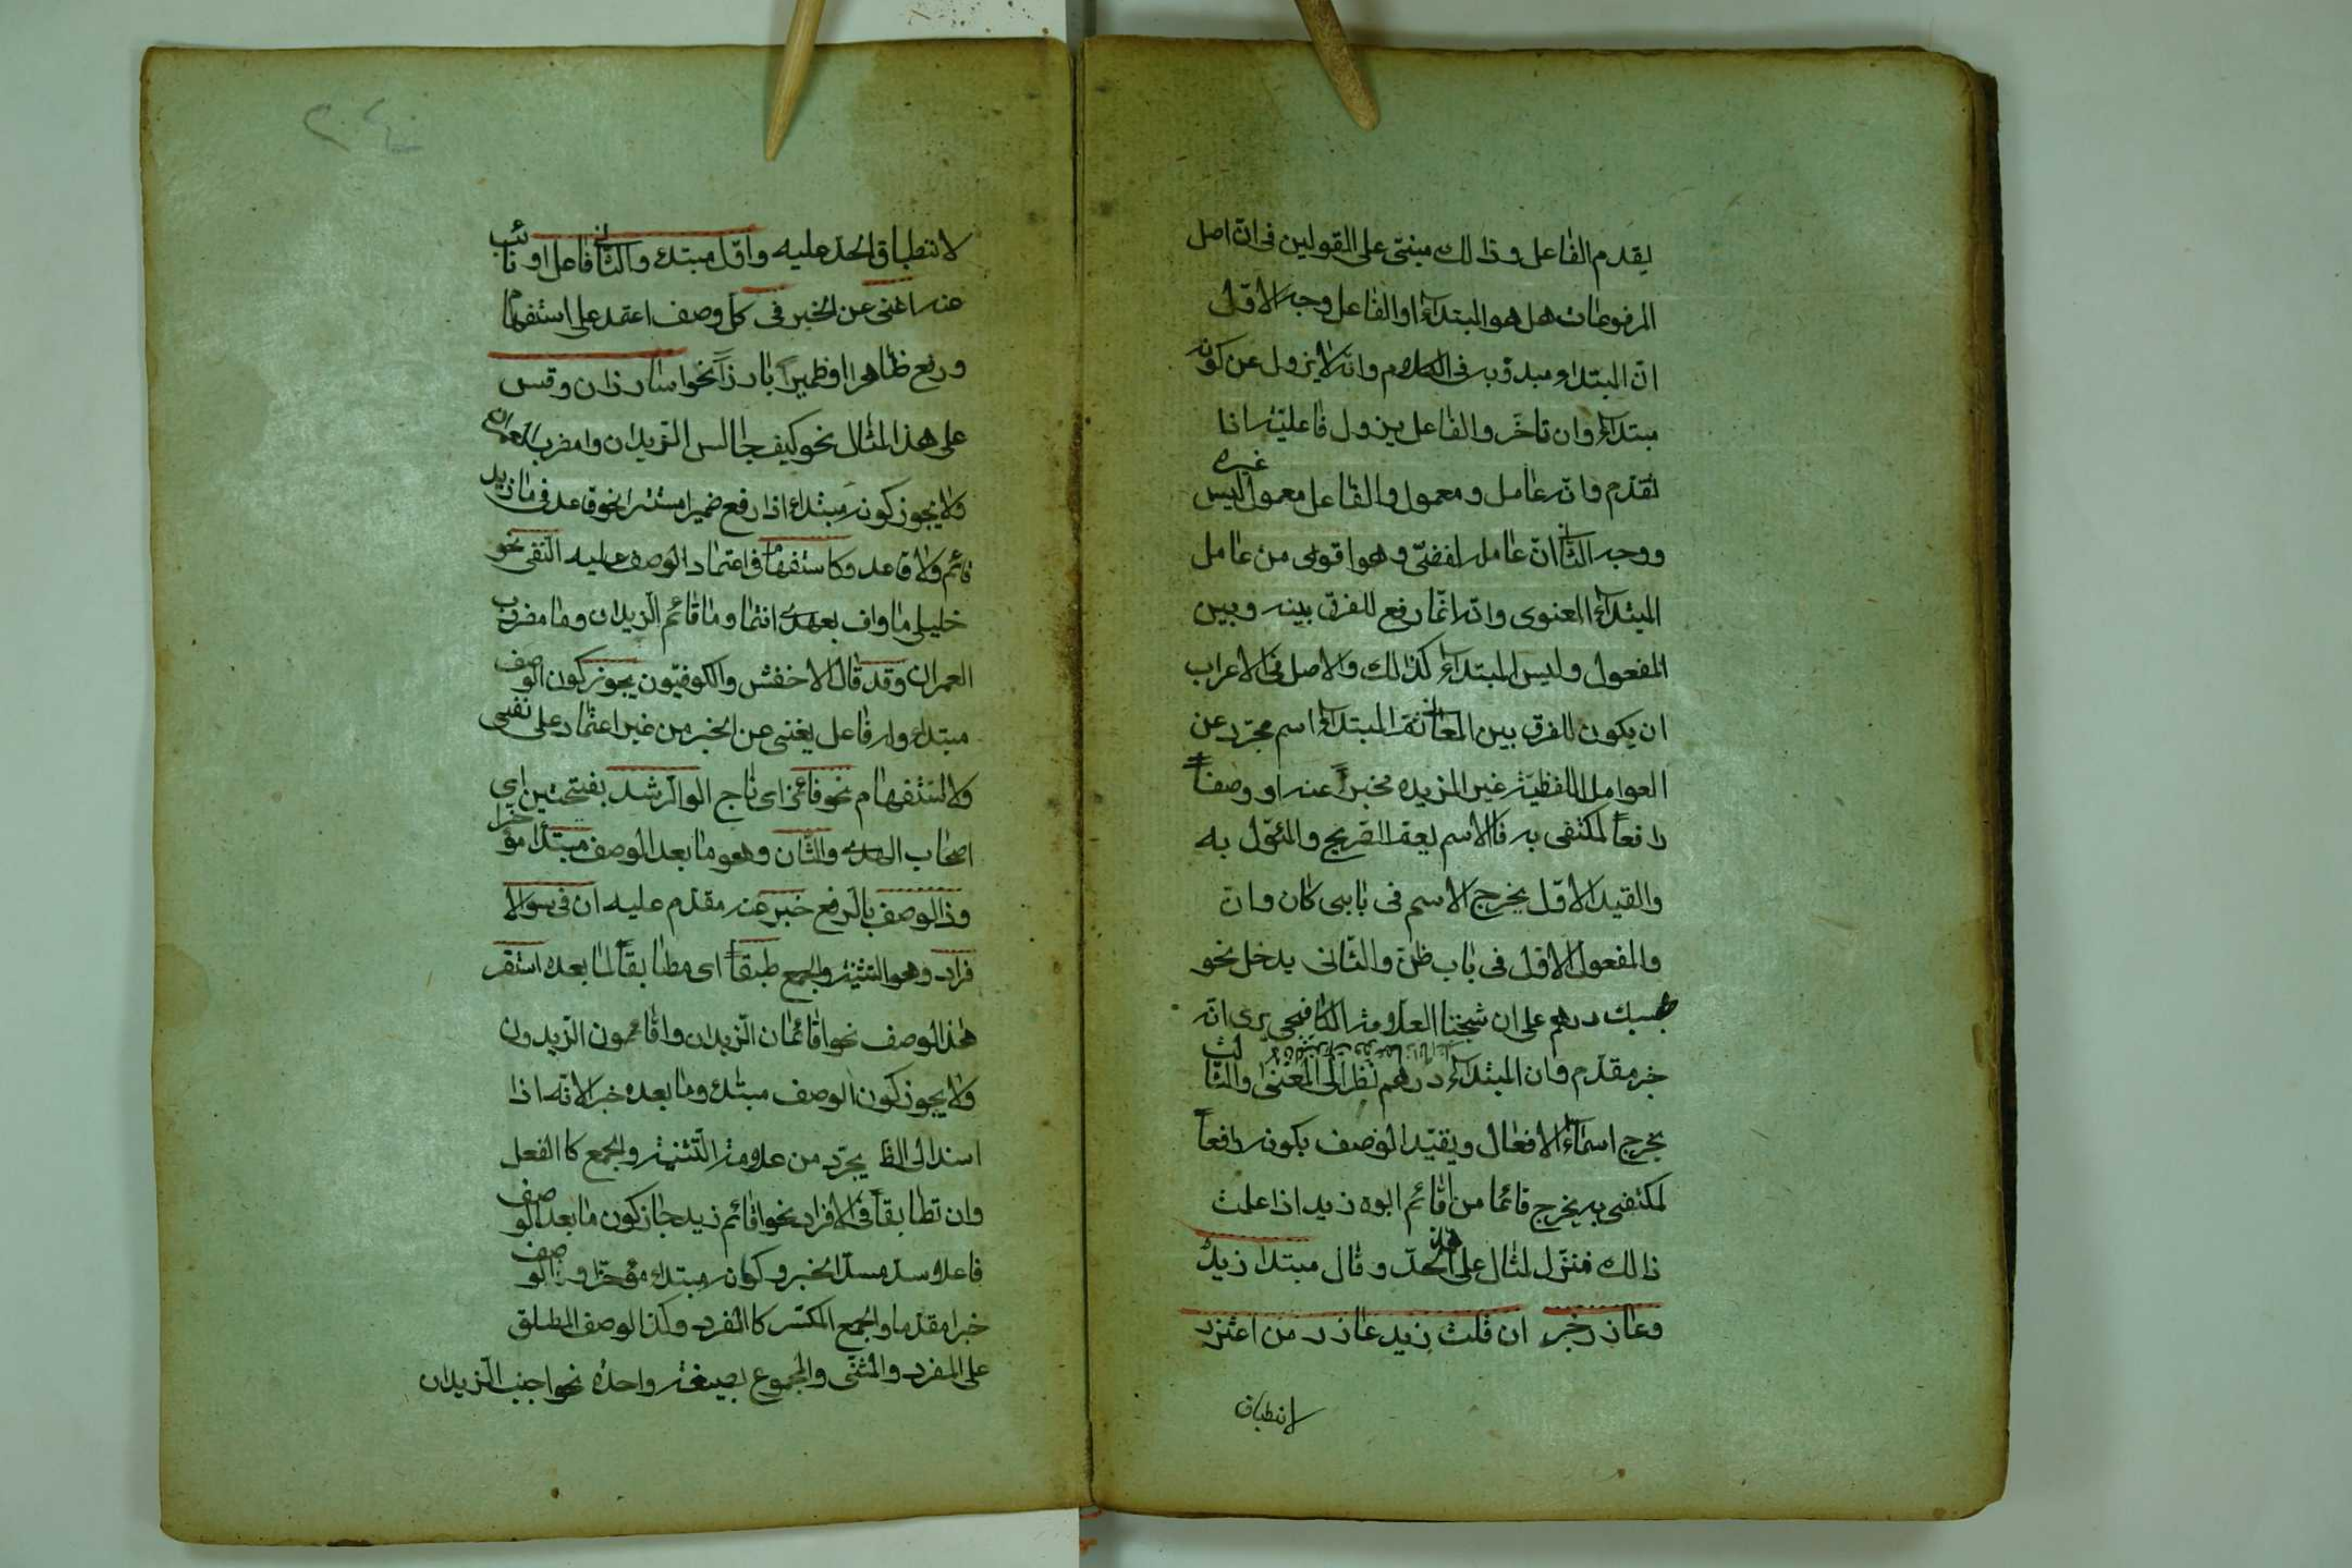 يقدم الفاعل وذالك مبنى على القولين فى ان اصل
المرفوعات هل هو المبتداء او الفاعل وجه الاول
ان المبتداء مبدوّ به فى الكلام وانه لا يزول عن كونه
مبتداء وان تاخّر والفاعل يزول فاعليته اذا
تقدّم وانه عامل ومعمول والفاعل معمول ليس غيره
ووجه الثانى ان عامله لفظى وهو اقوى من عامل
المبتداء المعنوى وانه انما رفع للفرق بينه وبين
المفعول وليس المبتداء كذالك والاصل فى الاعراب
ان يكون للفرق بين المعانى ثمّ المبتداء اسم مجرّد عن
العوامل اللفظيّة غير المزيده مخبراً عنه او وصفاً
رافعاً لمكتفى به فالاسم يعم الصريح والمئوّل به
والقيد الاوّل يخرج الاسم فى بابى كان وانّ
والمفعول الاول فى باب ظنّ والثّانى يدخل نحو
بحسبك درهم على ان شيخنا العلّامة الكافيجى يرى انه
خبر مقدّم وان المبتداء درهم نظراً الى المعنى والثالث
يخرج اسماء الافعال ويقيّد الوصف بكونه رافعاً
لمكتفى به يخرج قائما من اقائم ابوه زيد اذا علمت
ذالك فنزّل المثال على هذا الحدّ وقال مبتدا زيدٌ
وعاذر خبر ان قلت زيد عاذر من اعتذر
لانطباق
٢٤
لانطباق الحدّ عليه واوّل مبتداء والثانى فاعل او نائب
عنه اغنى عن الخبر فى كلّ وصف اعتمد على استفهام
ورفع ظاهرا او ضميراً بارزاً نحو اسار ذان وقس
على هذا المثال نحو كيف جالس الزيدان وامضرب العمران
ولا يجوز كونه مبتداء اذا رفع ضميرا مستترا نحو قاعد فى ما زيد
قائم ولا قاعد وكاستفهام فى اعتماد الوصف عليه النفى نحو
خليلى ما واف بعهدى انتما وما قائم الزيدان وما مضروب
العمران وقد قال الاخفش والكوفيّون يجوز كون الوصف
مبتداء وله فاعل يغنى عن الخبر من غير اعتماد على نفى
ولا استفهام نحو فائز اى ناج الوا الرشد بفتحتين اى
اصحاب الهدى والثان وهو ما بعد الوصف مبتدا مؤخر
وذا الوصف بالرفع خبر عنه مقدّم عليه ان فى سوى الا
فراد وهو التثنية والجمع طبقاً اى مطابقاً لما بعده استقر
هذا الوصف نحو اقائمان الزيدان واقائمون الزيدون
ولا يجوز كون الوصف مبتداء وما بعده خبر لانه اذا
اسند الى الظ يجرّد من علامة التثنية والجمع كا الفعل
وان تطابقاً فى الافراد نحو اقائم زيد جاز كون ما بعد الوصف
فاعلا سدّ مسدّ الخبر وكونه مبتداء مؤخّرا والوصف
خبرا مقدما والجمع المكسّر كا المفرد وكذا الوصف المطلق
على المفرد والمثنّى والمجموع بصيغة واحدة نحو اجنب الزيدان